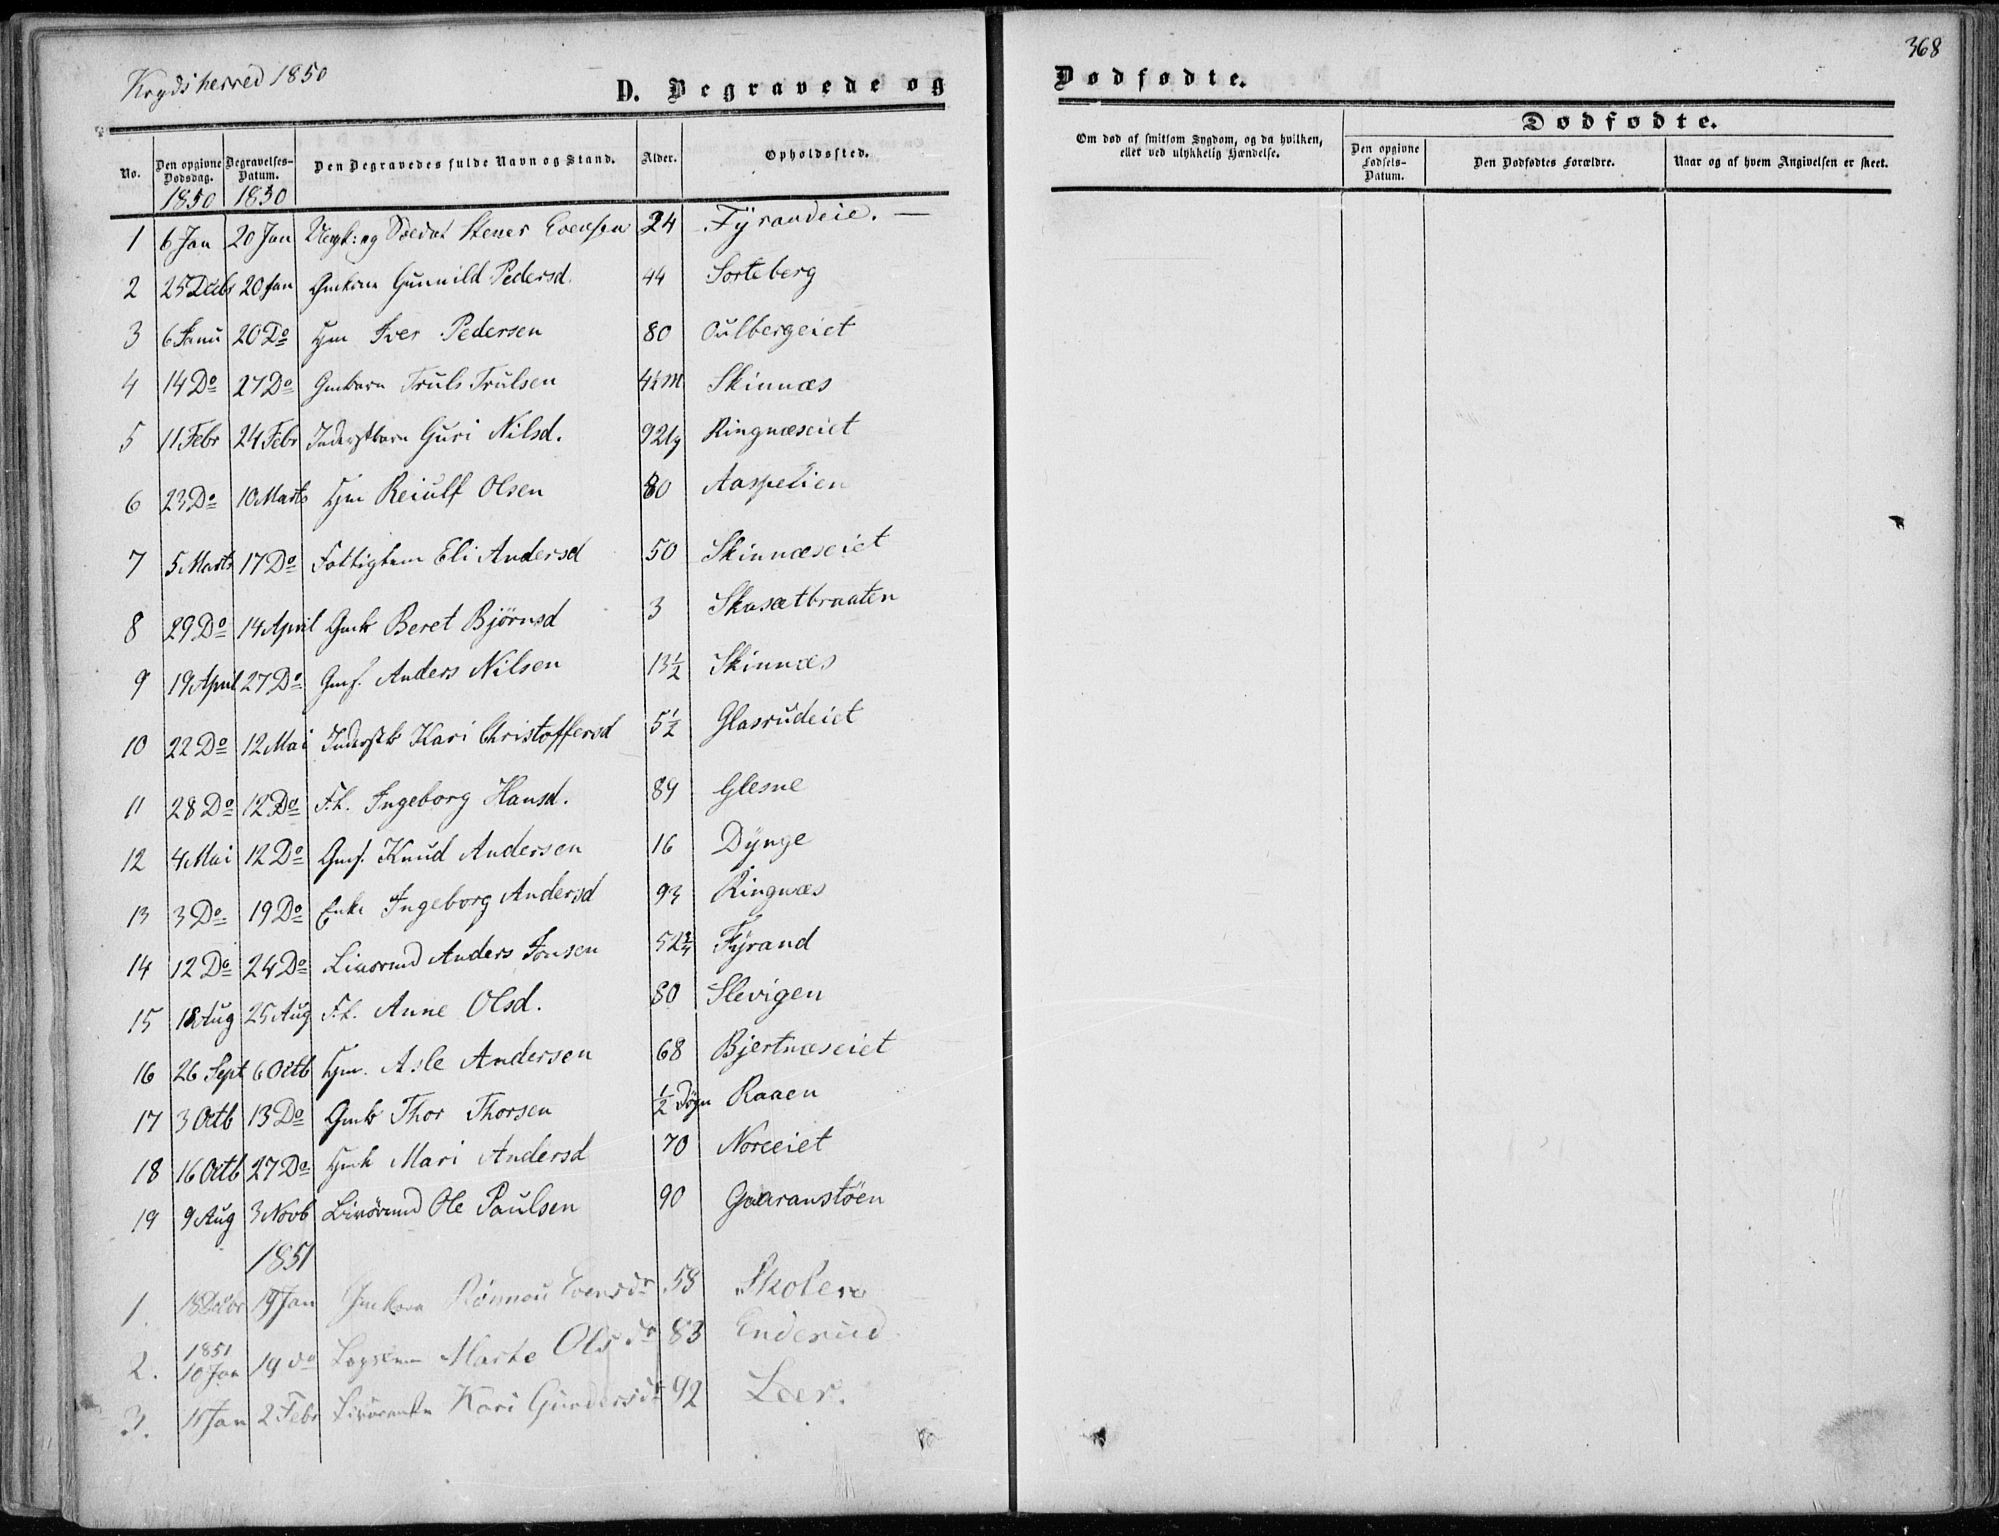 Krydsherred 1850
D. Begravede og
Dødfødte.
368
No.
Den opgivne Dødsdag.
Begravelses-Datum.
Den Begravedes fulde Navn og Stand.
Alder.
Opholdssted.
Om død af smitsom Sygdom, og da hvilken, eller ved ulykkelig Hændelse.
Dødfødte.
Den opgivne Fødsels-Datum.
Den Dødfødtes Forældre.
Naar og af hvem Angivelsen er skeet.
1850 1850
1 6 Jan 20 Jan Soldat Stener Evensen 24 Fyrandeie. —
2 25 Decbr 20 Jan Gmkone Gunnild Pedersd. 44 Sorteberg
3 6 Janu 20 Do Hm Iver Pedersen 80 Oulbergeiet
4 14 Do 27 Do Gmbarn Truls Trulsen 4½ M Skinnæs
5 11 Febr 24 Febr Inderstbarn Guri Nilsd. Ringnæseiet
6 23 Do 10 Marts Hm Reiulf Olsen 80 Aaspelien
7 5 Marts 17 Do Fattiglem Eli Andersd 50 Skinnæseiet
8 29 Do 14 April Gmb Beret Bjørnsd 3 Skasætbraaten
9 19 April 27 Do Gmf. Anders Nilsen 13½ Skinnæs
10 22 Do 12 Mai Inderstb Kari Christoffersd 5½ Glasrudeiet
11 28 Do 12 Do F.L. Ingeborg Hansd. 89 Glesne
12 4 Mai 12 Do Gmf. Knud Andersen 16 Dynge
13 3 Do 19 Do Enke Ingeborg Andersd 93 Ringnæs
14 12 Do 24 Do Livørmd Anders Jonsen 52¾ Fyrand
15 18 Aug 25 Aug F.L. Anne Olsd. 80 Slevigen
16 26 Sept 6 Octb Hm. Asle Andersen 68 Bjertnæseiet
17 3 Octb 13 Do Gmb Thor Thorsen ½ Døgn Raaen
18 16 Octb 27 Do Hmk Mari Andersd 70 Noreeiet
19 9 Aug 3 Novb Livørmd Ole Paulsen 90 Gaaranstøen
1851
1. 18 Decbr 19 Jan Gmkone Rønnou Evensdr 58
2. 1851 10 Jan 19 do Marte Olsdr 83 Enderud
3. 11 Jan 2 Febr Kari Gundersdr 92 Leer.